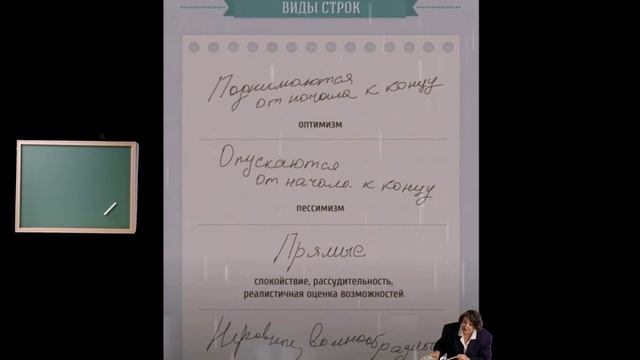 ВИДЫ СТРОК
Поднимаются
от начала к концу
оптимизм
Опускаются
от начала к концу
пессимизм
Прямые
спокойствие, рассудительность,
реалистичная оценка возможностей
Неровные, волнообразные